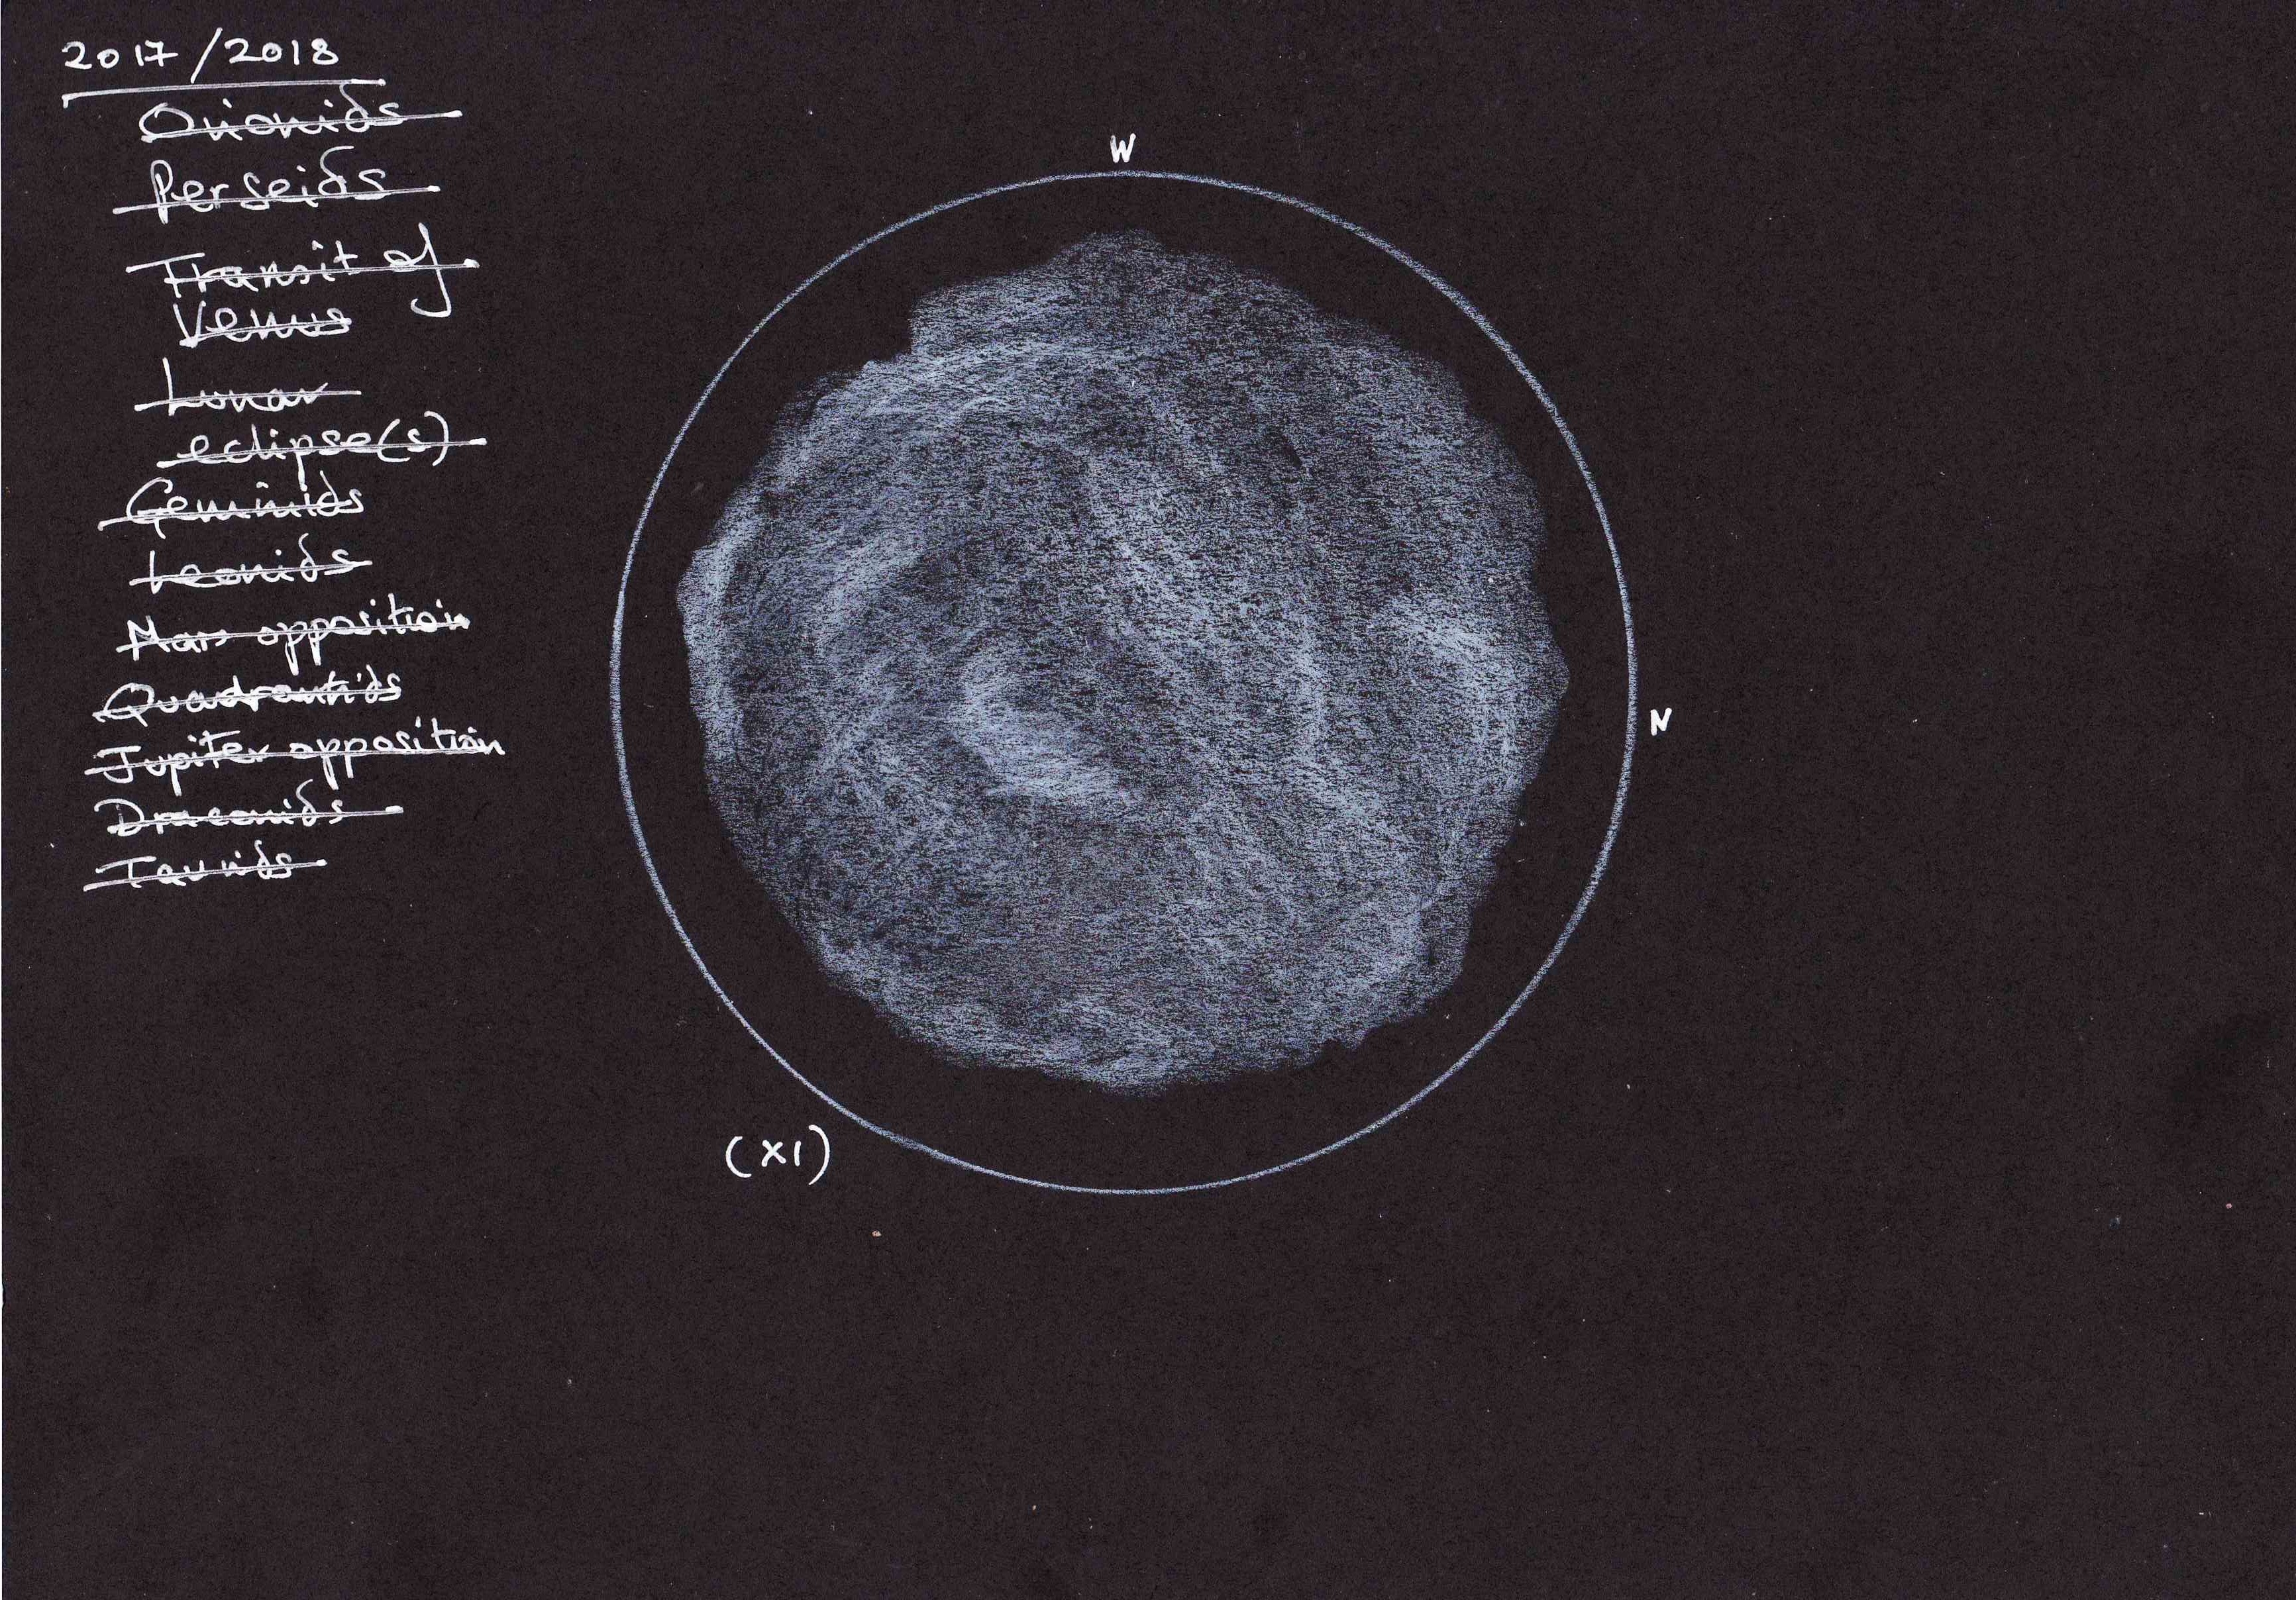 2017/2018
Orionids
Perseids
Transit of
Venus
Lunar
eclipse(s)
Geminids
Leonids
Mars opposition
Quadrantids
Jupiter opposition
Draconids
Taurids
W
N
(X1)